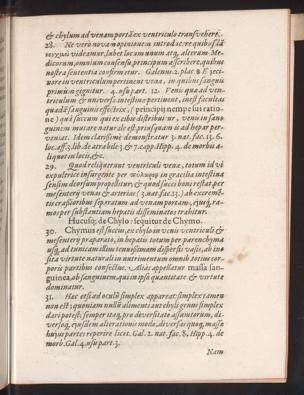 & chylum ad venam portã ex ventriculo transvehere.
28. Ne verò novam opinionem introducere quibusdã
videamur, lubet locum unum atq; alterum Me-
dicorum, omnium consensu principum ascribere, quibus
nostra sententia confirmetur. Galenus. 2. plac. 8
in ventriculum pertinent venæ, in quibus sanguis
primùm gignitur. 4. usu part. 12. Venis quæ ad ven-
triculum & universa intestina pertinent, inest facultas
quædã sanguinis effectrix, (principij nempe sui ratio-
ne) quâ succum qui ex cibis distribuitur, venis in san-
guinem mutare naturale est, priusquam is ad hepar per-
veniat. Idem clarissimè demonstratur 3. nat. fac. 13. 6.
loc. aff. 3. lib. de atra bile 3 & 7. c app. Hipp. 4. de morbis a-
liquot in locis, &c.
29. Quod reliquerunt ventriculi venæ, totum id vi
expultrice insurgente per πύλωρον in gracilia intestina
sensim deorsum propellitur, & quod succi boni restat per
mesenterij venas & arterias (3. nat. fac. 13.) ab excremẽ-
tis crassioribus separatum ad venam portam, ejusq́; ra-
mos per substantiam hepatis disseminatos trahitur.
Hucusq; de Chylo: sequitur de Chymo.
30. Chymus est succus, ex chylo in venis ventriculi &
mesenterij præparato, in hepatis totum per parenchyma
usq; ad tunicam illius tenuissimam dispersis vasis, ab in-
sita virtute naturali in nutrimentum omnib. totius cor-
poris partibus confectus. Aliàs appellatur massa san-
guinea, ob sanguinem, qui in ipsa quantitate & virtute
dominatur.
31. Hac etsi ad oculũ simplex appareat: simplex tamen
non est; quoniam nullũ alimenti aut chyli genus simplex
dari potest: semper itaq; pro diversitate assumtorum, di-
versoq́; ejusdem alterationis modo, diversas quoq; massæ
hujus partes reperire licet. Gal. 2. nat. fac. 8. Hipp. 4. de
morb. Gal. 4. usu part. 3.
Nam